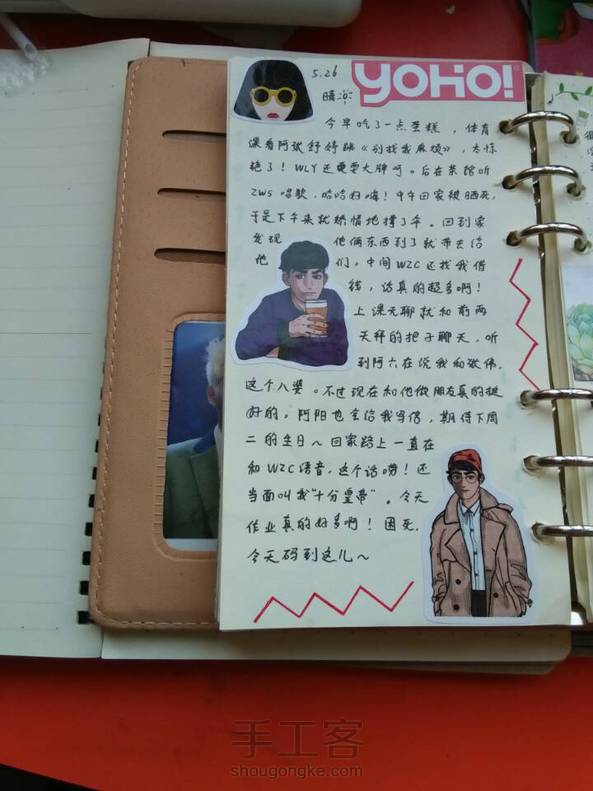 5.26
YOHO!
晴
今早吃了一点蛋糕,体育
课看阿斌舒婷跳《别找我麻烦》,太惊
艳了!WLY还要耍大牌呵。后在茶馆听
ZWS唱歌,哈哈哈嗨!中午回家被晒死,
于是下午来就矫情地撑了伞。回到家
发现 他俩东西到了就带去给
他 们,中间WZC还找我借
钱,话真的超多啊!
上课无聊就和前两
天秤的把子聊天,听
到阿六在说我和张伟,
这个八婆。不过现在和他做朋友真的挺
好的。阿阳也会给我写信,期待下周
二的生日~回家路上一直在
和WZC语音,这个话唠!还
当面叫我"十分皇帝"。今天
作业真的好多啊!困死,
今天码到这儿~
手工客
shougongke.com